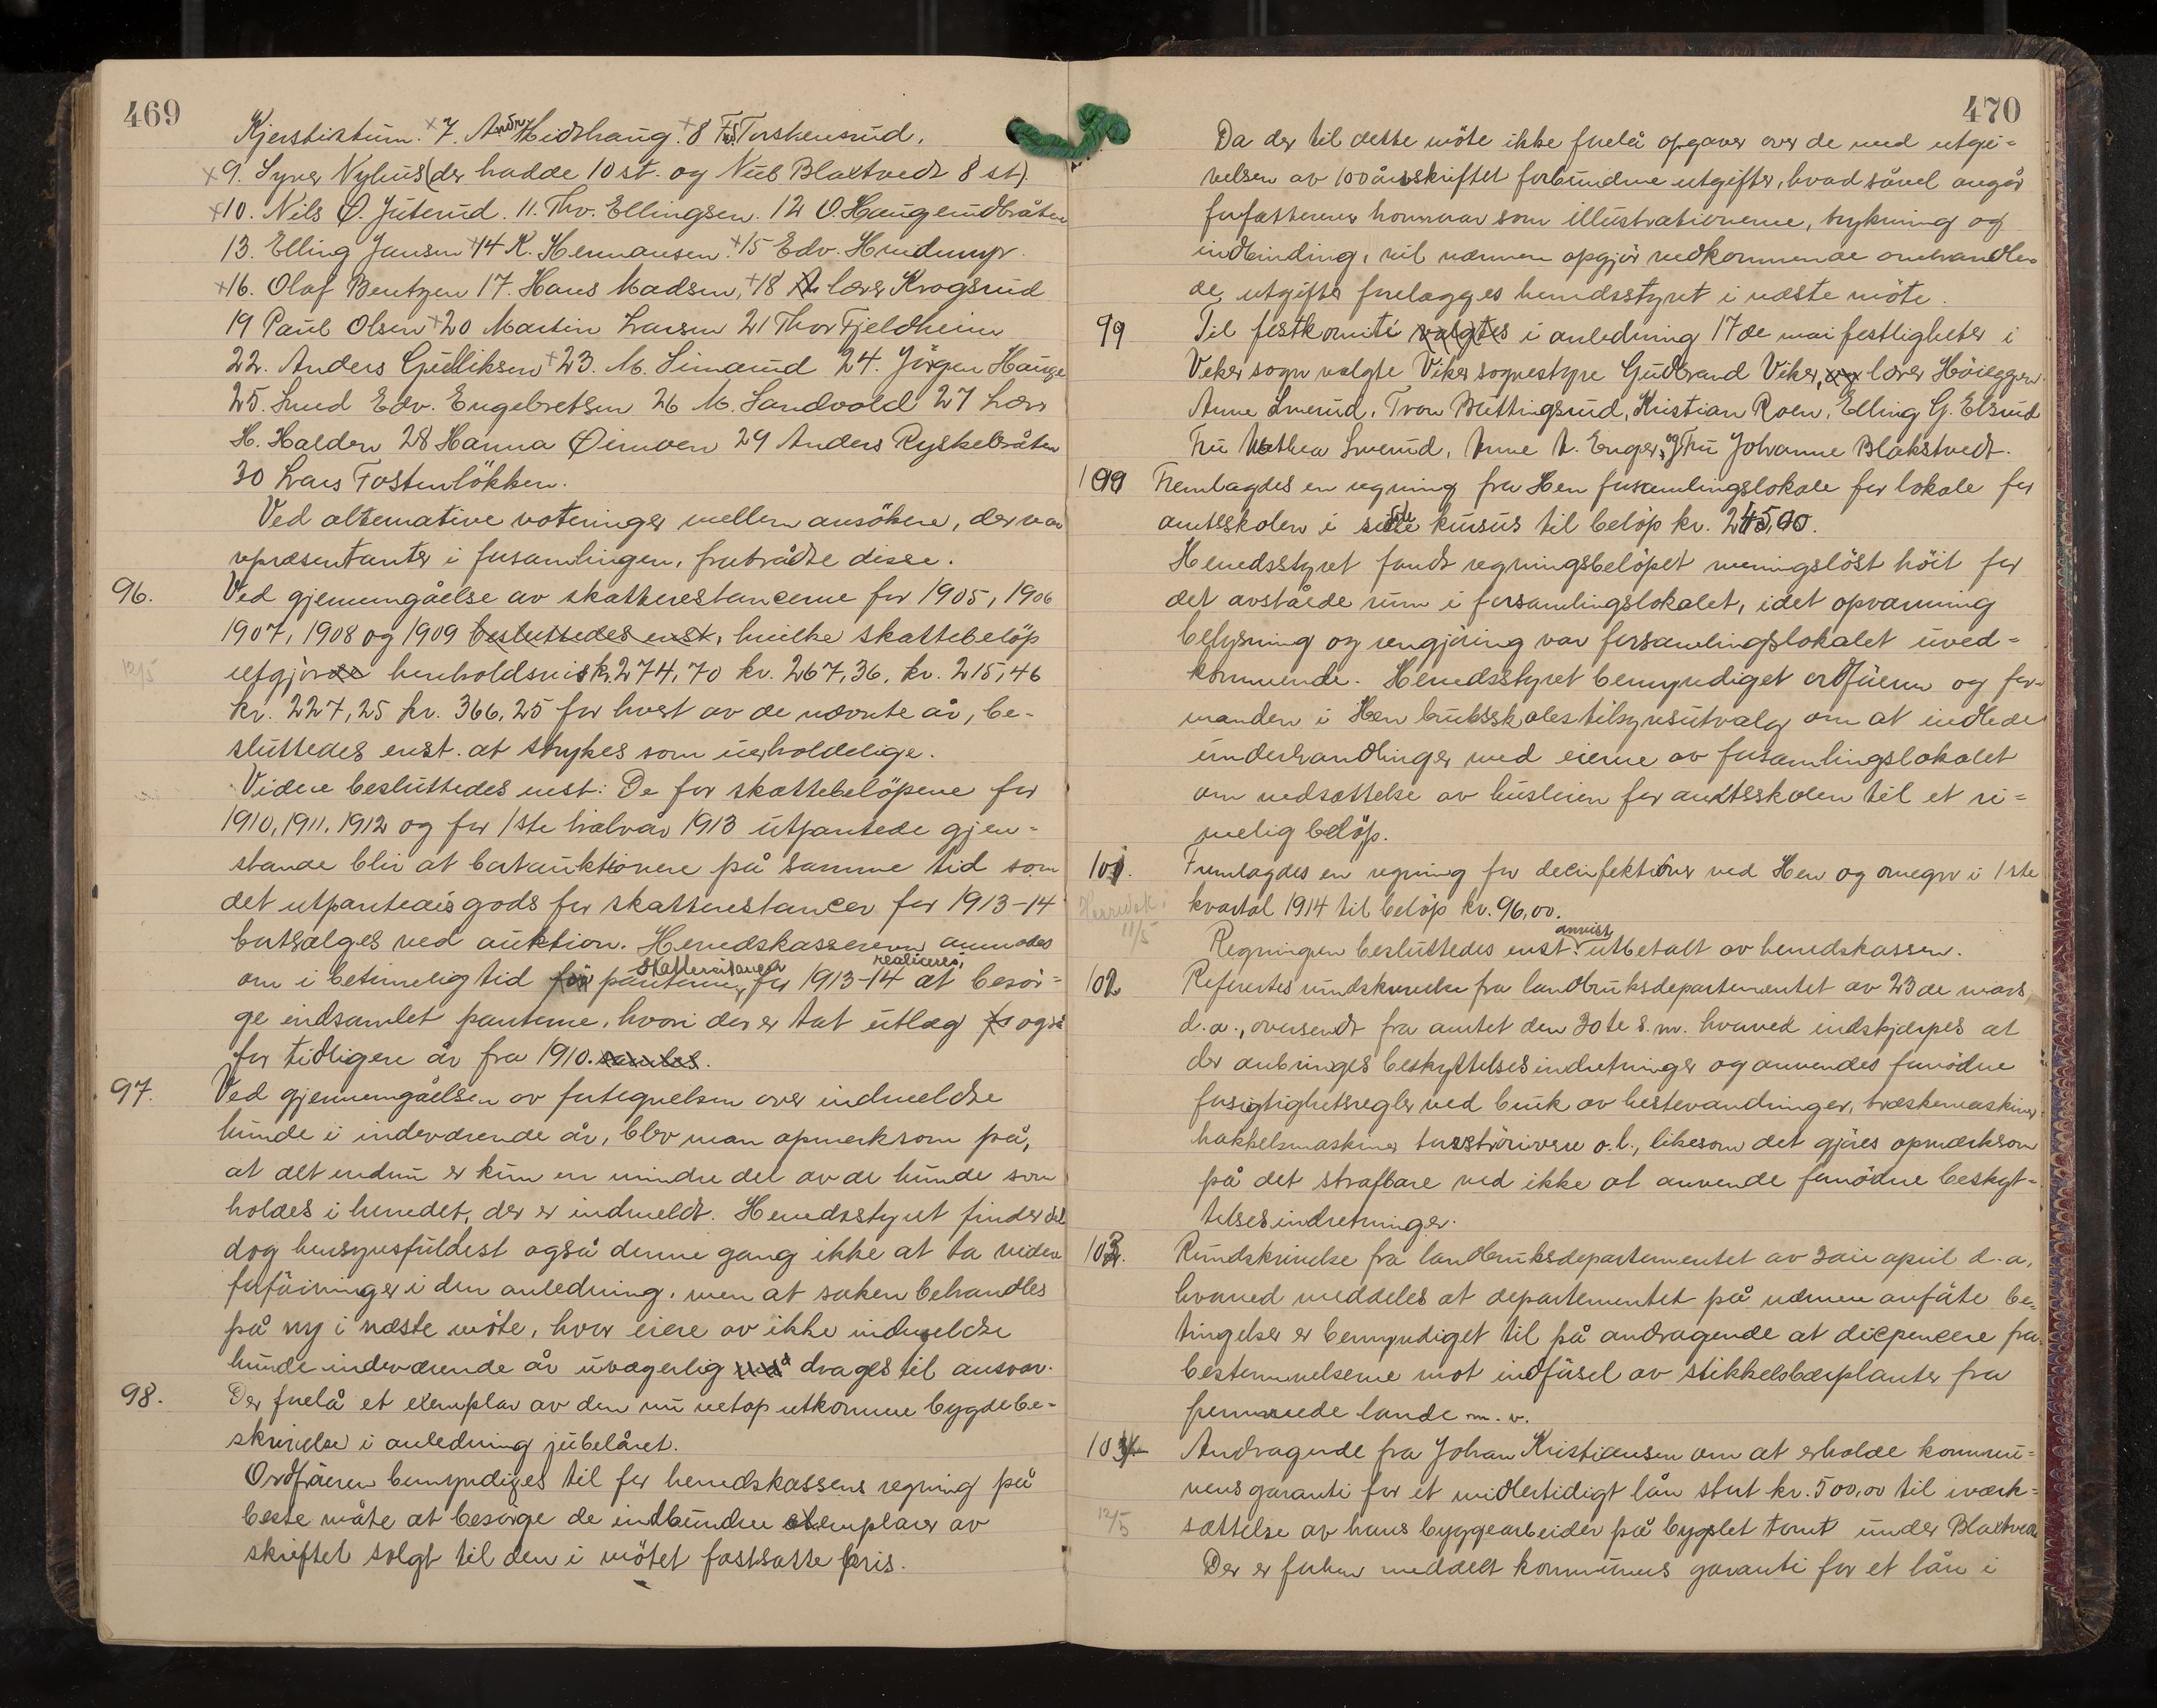 469
Kjerstixtum. x7. Andr. Hidshaug. x8 Torskensrud.
x9. Syver Nyhus (der hadde 10 st. og Nub Blaxtvedt 8 st).
x10. Nils O. Juterud. 11. Thv. Ellingsen. 12 O. Haugerudbråten
13. Elling Jansen x14 K. Hermansen. x15 Edv.
x16. Olaf Bentzen 17. Hans Madsen, x18 lærer Krogsrud
19 Paul Olsen x20 Martin Larsen 21 Thor Fjeldheim
22. Anders Gulliksen x23. M. Simarud 24. Jörgen Hauge
25. Smed Edv. Engebretsen 26 M. Sandvold 27 Lærer
H. Halden 28 Hanna Oimoen 29 Anders Ryskebråten
30 Lars Tostenlökken.
Ved alternative voteringer mellem ansökere, der var
repræsentanter i forsamlingen, fratrådte disse.
96. Ved gjennemgåelse av skatterestancerne for 1905, 1906
1907, 1908 og 1909 besluttedes enst., hvilke skattebelöp
utgjorde henholdsvis kr. 274,70 kr. 267,36, kr. 215,46
12/5
kr. 227,25 kr. 366,25 for hvert av de nævnte år, be-
sluttedes enst. at strykes som uerholdelige.
Videre besluttedes enst: De for skattebelöpene for
1910, 1911, 1912 og for 1ste halvår 1913 utpantede gjen-
stande blir at bortauktionere på samme tid som
det utpantedes gods for skatterestancer for 1913-14
bortsælges ved auktion. Herredskassereren anmodes
om i betimelig tid för panterne skatterestancer for 1913-14 realiceres, at besör-
ge indsamlet panterne, hvori der er tat utlæg også
for tidligere år fra 1910. samles.
97. Ved gjennemgåelsen av fortegnelsen over indmeldte
hunde i indeværende år, blev man opmerksom på,
at det endnu er kun en mindre del av de hunde som
holdes i herredet, der er indmeldt. Herredsstyret finder det
dog hensynsfuldest også denne gang ikke at ta videre
forföininger i den anledning, men at saken behandles
på ny i næste möte, hvor eiere av ikke indmeldte
hunde indeværende år uvægerlig drages til ansvar.
98. Der forelå et exemplar av den nu netop utkomne bygdebe-
skrivelse i anledning jubelåret.
Ordföreren bemyndiges til for herredskassens regning på
beste måte at besörge de indbundne exemplarer av
skriftet solgt til den i mötet fastsatte pris.
470
Da der til dette möte ikke forelå opgaver over de med utgi-
velsen av 100 årsskriftet forbundne utgifter, hvad såvel angår
forfatterens honorar som illustrationerne, trykning og
indbinding, vil nærmere opgjör vedkommende omhandle-
de utgifter forelægges herredsstyret i næste möte.
99 Til festkomité valgtes i anledning 17de mai festligheter i
Veker sogn valgte Viker sognestyre Gudbrand Viker, og lærer Höieggen
Anne Smerud, Tron Buttingsrud, Kristian Roen, Elling G. Elsrud
Fru Mathea Smerud, Anne A. Enger, og Fru Johanne Blakstvedt.
199 Fremlagdes en regning fra Hen forsamlingslokale for lokale for
amtsskolen i siste kursus til belöp kr. 245,00.
Herredsstyret fandt regningsbelöpet meningslöst höit for
det avståede rum i forsamlingslokalet, idet opvarming
belysning og rengjöring var forsamlingslokalet uved-
kommende. Herredsstyret bemyndiget ordföreren og for-
manden i Hen bruksskoles tilsynsutvalg om at indlede
underhandlinger med eierne av forsamlingslokalet
om nedsættelse av husleien for amtsskolen til et ri-
melig belöp.
101. Fremlagdes en regning for decinfektioner ved Hen og omegn i 1ste
Herredsk. 11/5
kvartal 1914 til belöp kr. 96,00.
Regningen besluttedes enst. anvist utbetalt av herredskassen.
102 Referertes rundskrivelse fra landbruksdepartementet av 23de mars
d.a., oversendt fra amtet den 30te s.m. hvorved indskjærpes at
der anbringes beskyttelsesindretninger og anvendes fornödne
forsigtighetsregler ved bruk av hestevandringer, træskemaskiner
hakkelsmaskiner o.l., likesom det gjöres opmerksom
på det strafbare ved ikke at anvende fornödne beskyt-
telsesindretninger.
103. Rundskrivelse fra landbruksdepartementet av 3die april d.a.
hvorved meddeles at departementet på nærmere anförte be-
tingelser er bemyndiget til på andragende at dispencere fra
bestemmelserne mot indförsel av stikkelsbærplanter fra
fremmede lande m.v.
104 Andragende fra Johan Kristiansen om at erholde kommu-
nens garanti for et midlertidigt lån stort kr. 500,00 til iverk-
12/5
sættelse av hans byggearbeider på bygslet tomt under Blaxtvedt
Der er forhen meddelt kommunens garanti for et lån i